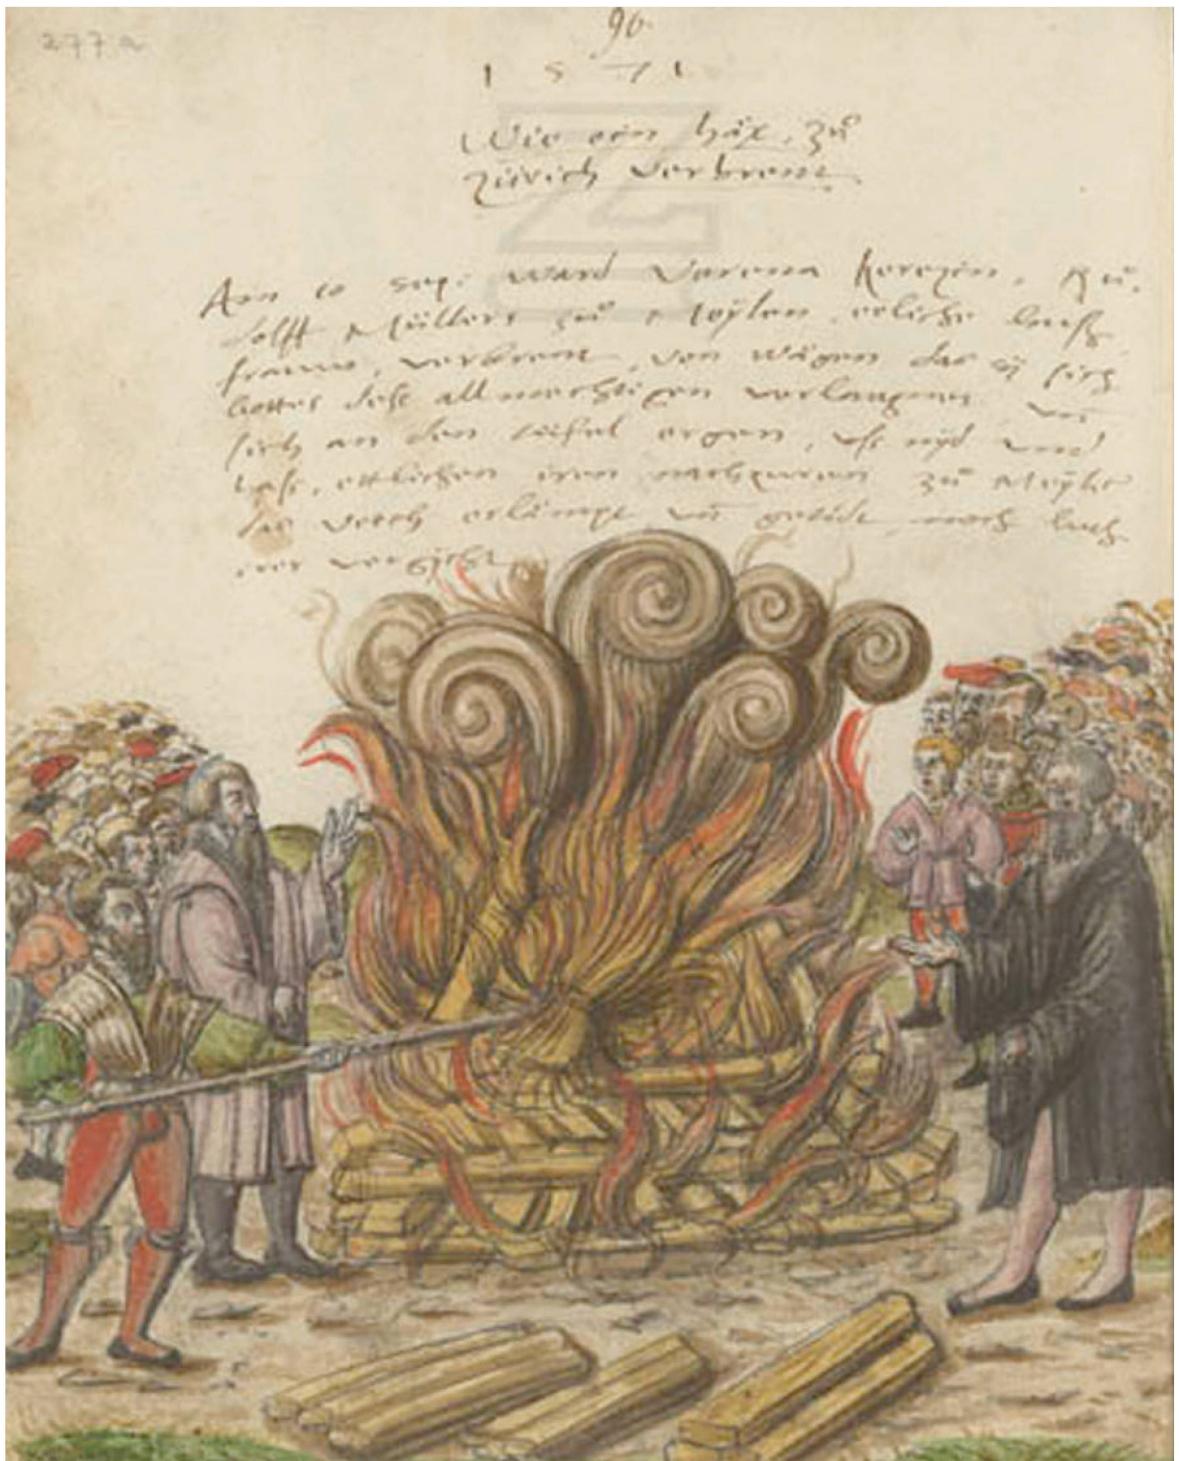 277a
96
1571
Wie ein häx, zů
Zürich verbrent.
Am 10 sep: ward Verena Kerezin, Rů,
dolff Müllers zů Meÿlen eeliche huß,
frauw, verbrent, von wägen das sÿ sich
Gottes deß allmechtigen verlaugnet, vn̄
sich an den tüfel ergen, uß nÿd vnd
haß, ettlichen iren nachpuren zů Meÿlen
das vech erlämpt vn̄ getödt, nach luth
irer vergicht